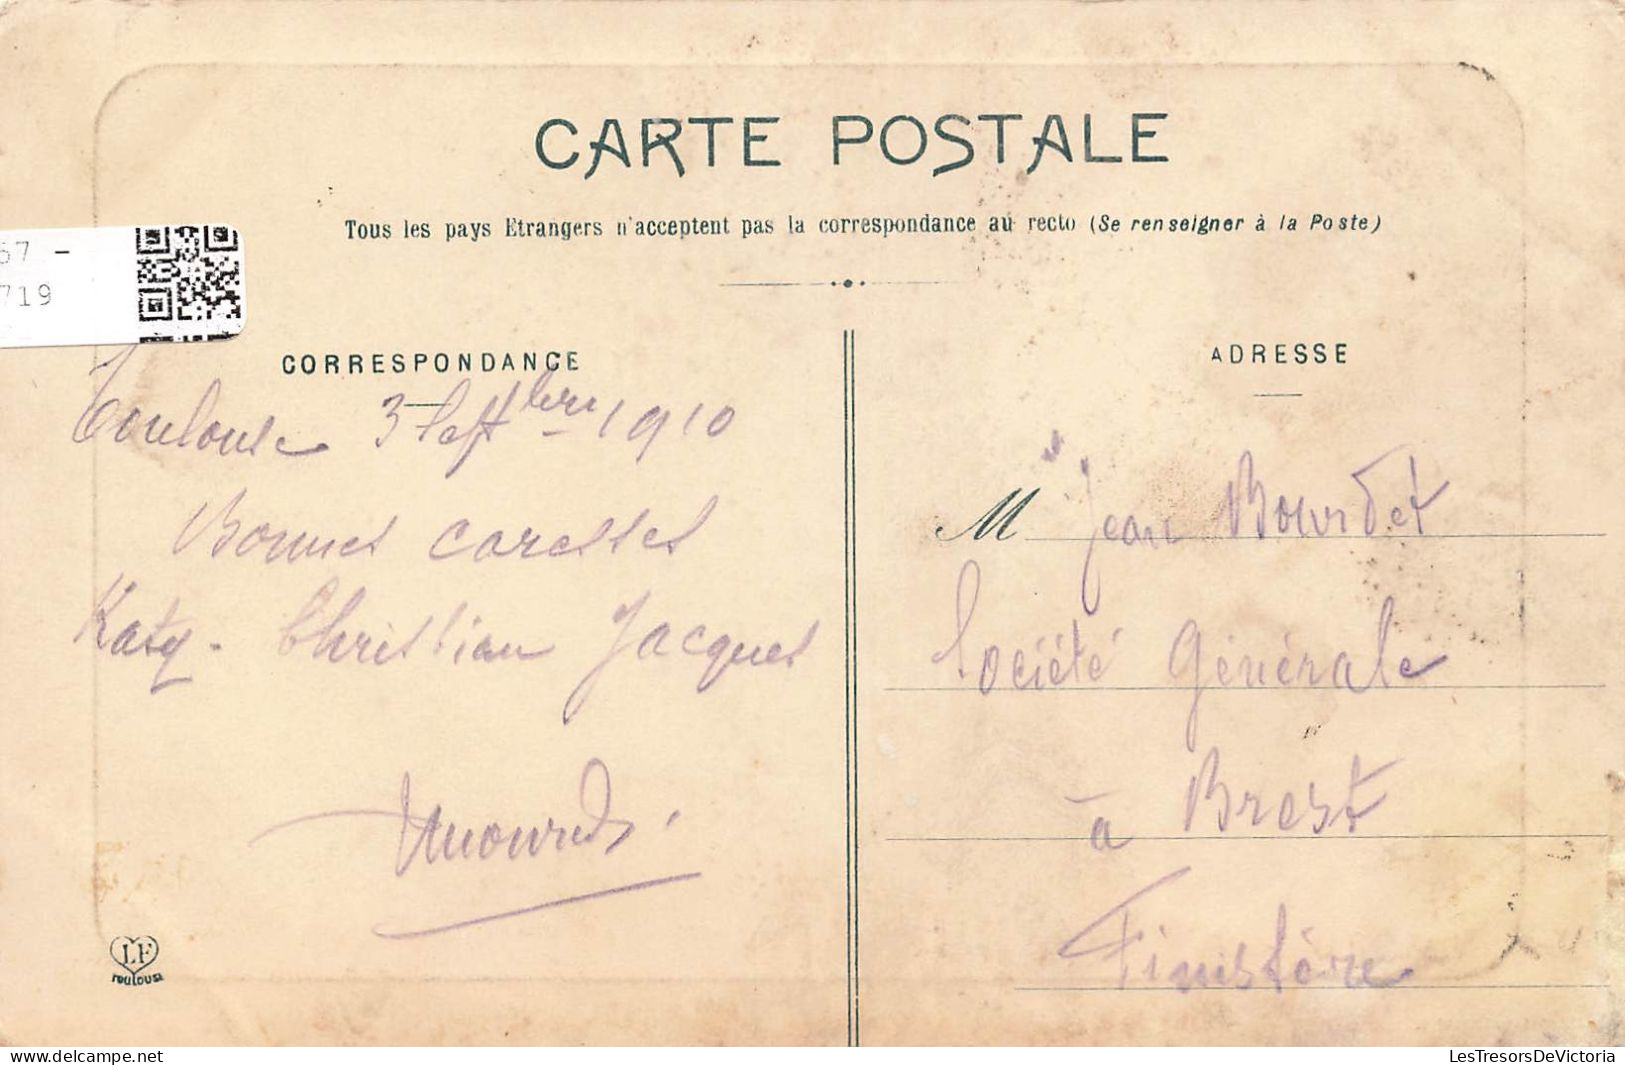 CARTE POSTALE
Tous les pays Etrangers n'acceptent pas la correspondance au recto (Se renseigner à la Poste)
67 -
719
CORRESPONDANCE
Toulouse 3 Septbre 1910
Bonnes caresses
Katy. Christian Jacques
LF
Toulouse
ADRESSE
M Jean Bourdet
Société Générale
à Brest
Finistère
delcampe.net
LesTresorsDeVictoria